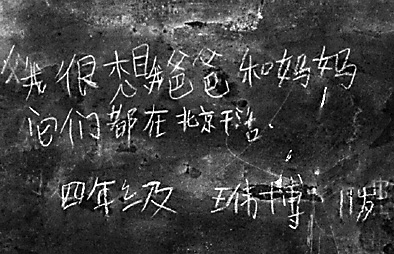 我很想我爸爸和妈妈
们都在北京干活.
四年级 王伟博 11岁